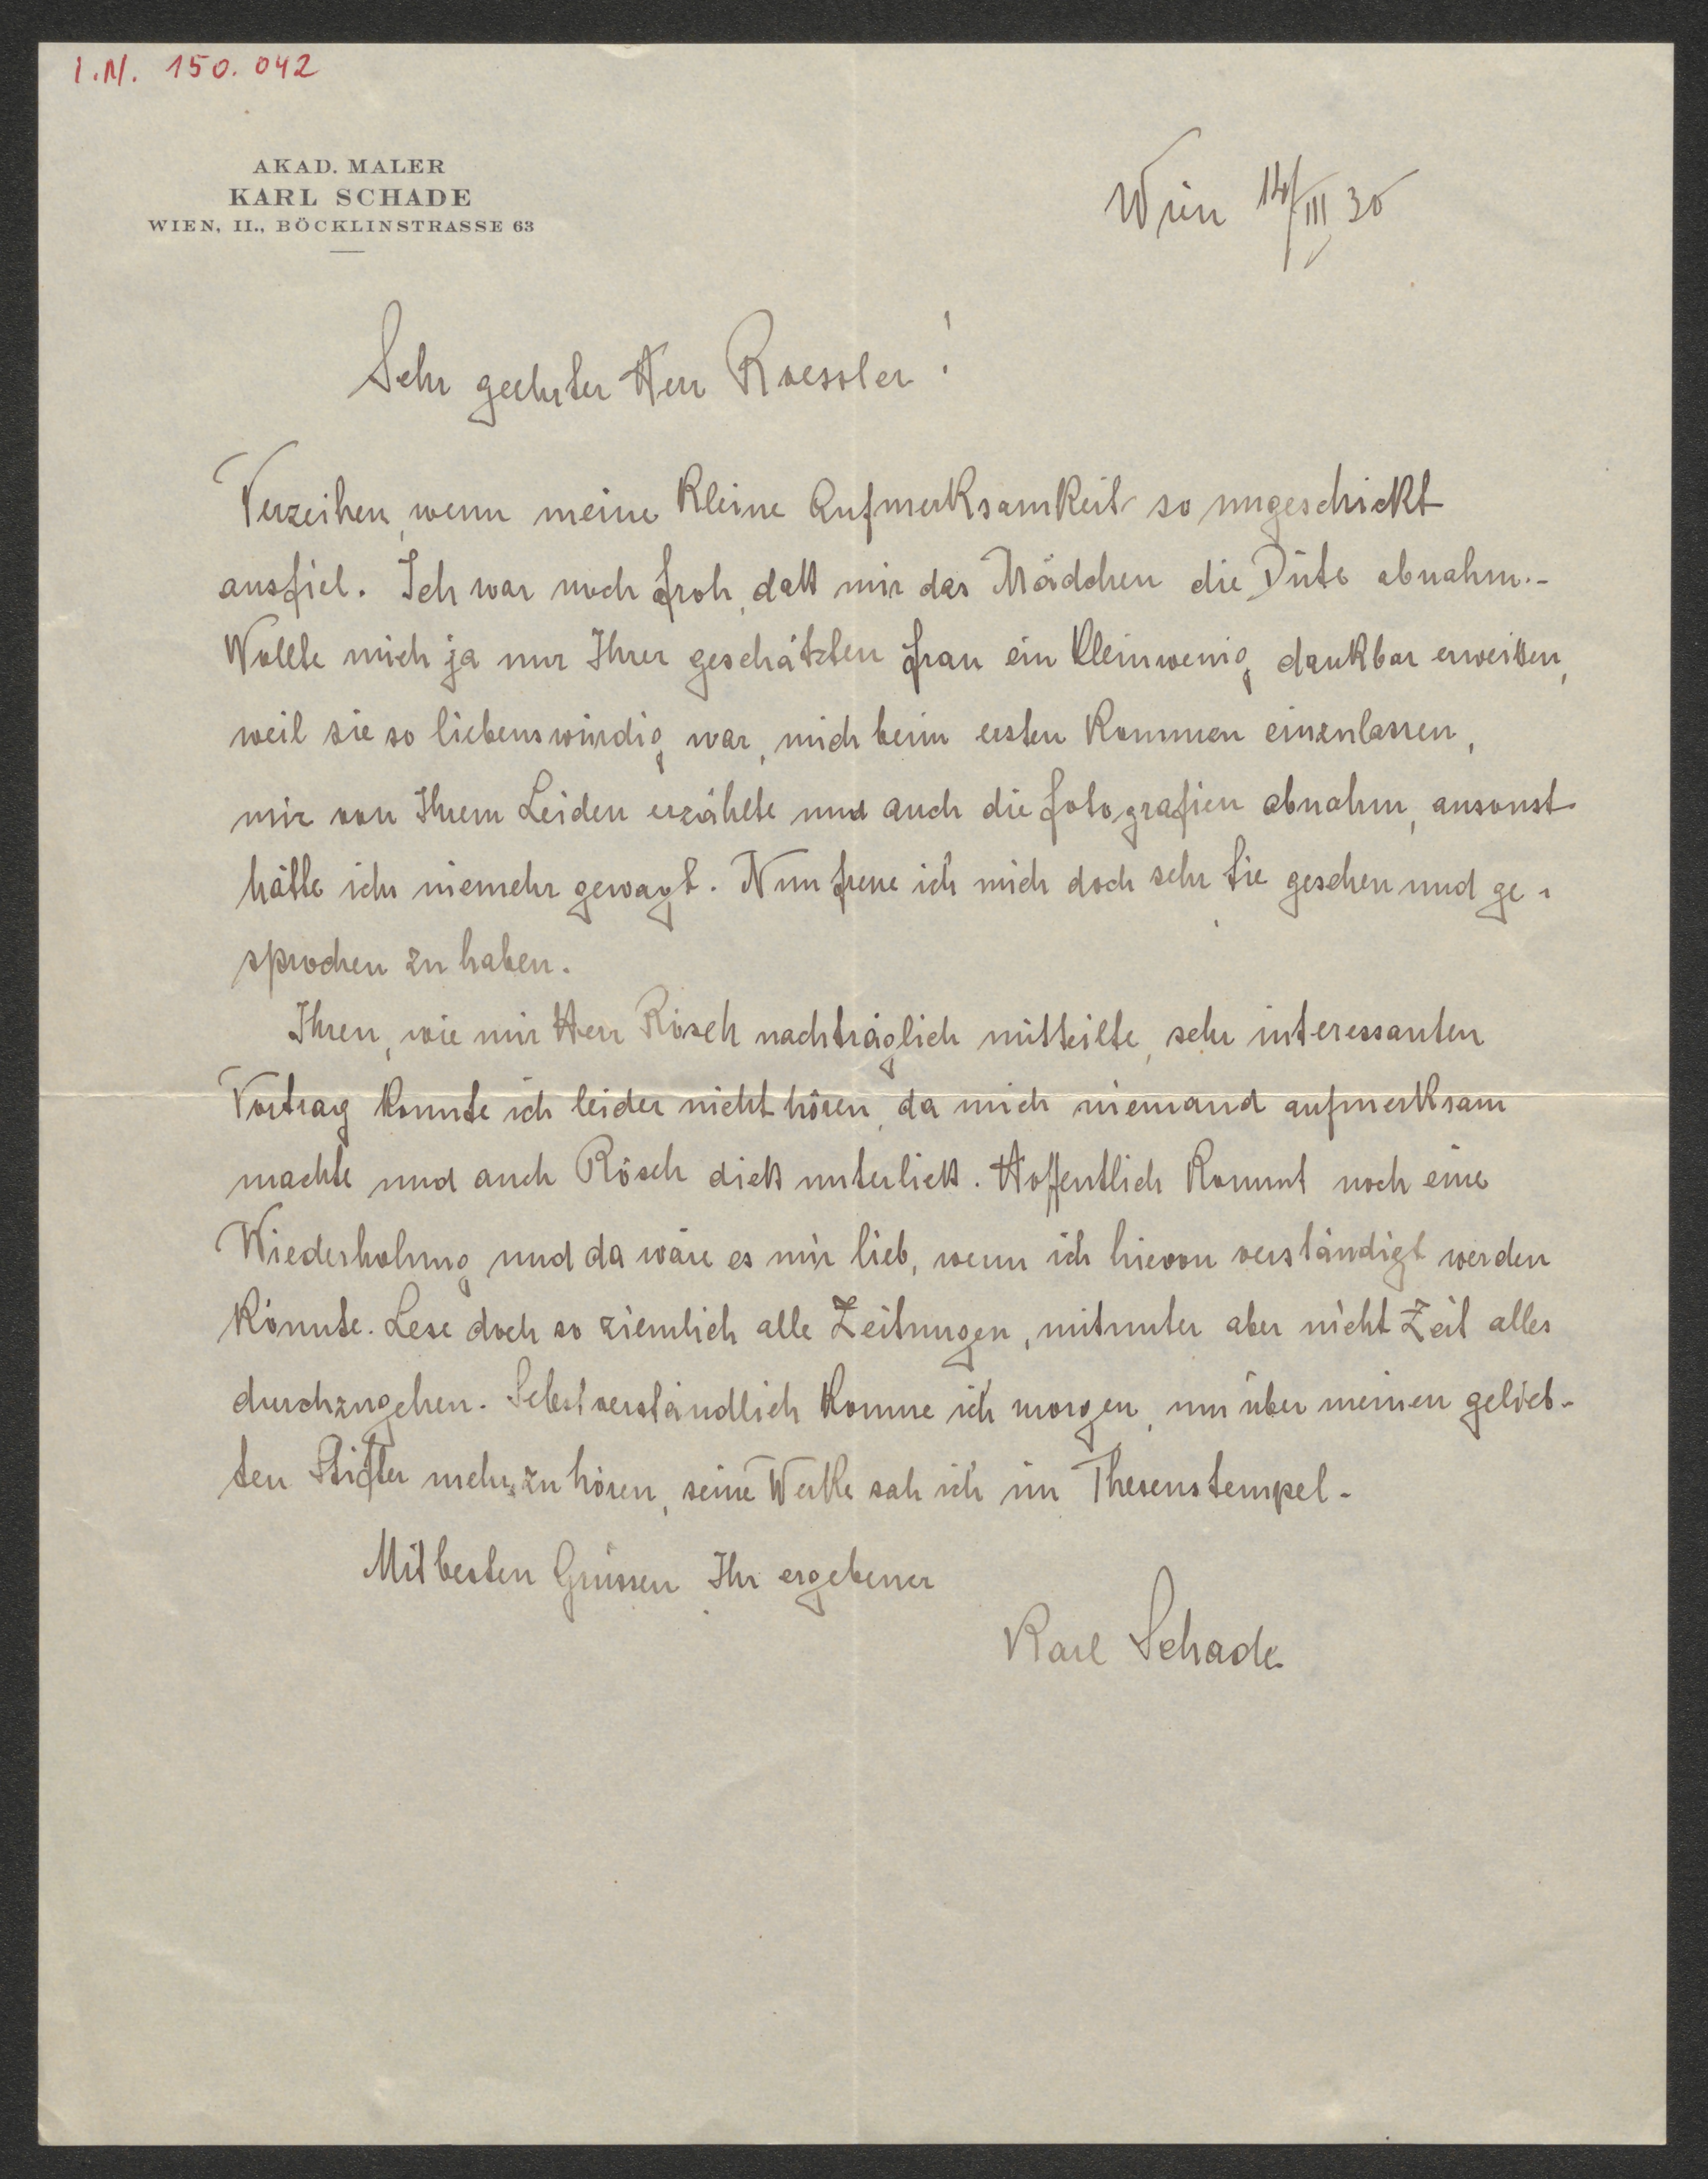 I.N. 150.042
AKAD. MALER
KARL SCHADE
WIEN, II., BÖCKLINSTRASSE 63
Wien 14/III 30
Sehr geehrter Herr Roessler!
Verzeihen, wenn meine kleine Aufmerksamkeit so ungeschickt
ausfiel. Ich war noch froh, daß mir das Mädchen die Düte abnahm.-
Wollte mich ja nur Ihrer geschätzten Frau ein kleinwenig dankbar erweißen,
weil sie so liebenswürdig war, mich beim ersten Kommen einzulassen,
mir von Ihrem Leiden erzählte und auch die Fotografien abnahm, ansonst
hätte ichs niemehr gewagt. Nun freue ich mich doch sehr Sie gesehen und ge-
sprochen zu haben.
Ihren, wie mir Herr Rösch nachträglich mitteilte, sehr interessanten
Vortrag konnte ich leider nicht hören, da mich niemand aufmerksam
machte und auch Rösch dieß unterließ. Hoffentlich kommt noch eine
Wiederholung und da wäre es mir lieb, wenn ich hievon verständigt werden
könnte. Lese doch so ziemlich alle Zeitungen, mitunter aber nicht Zeit alles
durchzugehen. Selbstverständlich komme ich morgen, um über meinen gelieb-
ten Stifter mehr zu hören, seine Werke sah ich im Theseustempel.
Mit besten Grüssen Ihr ergebener
Karl Schade